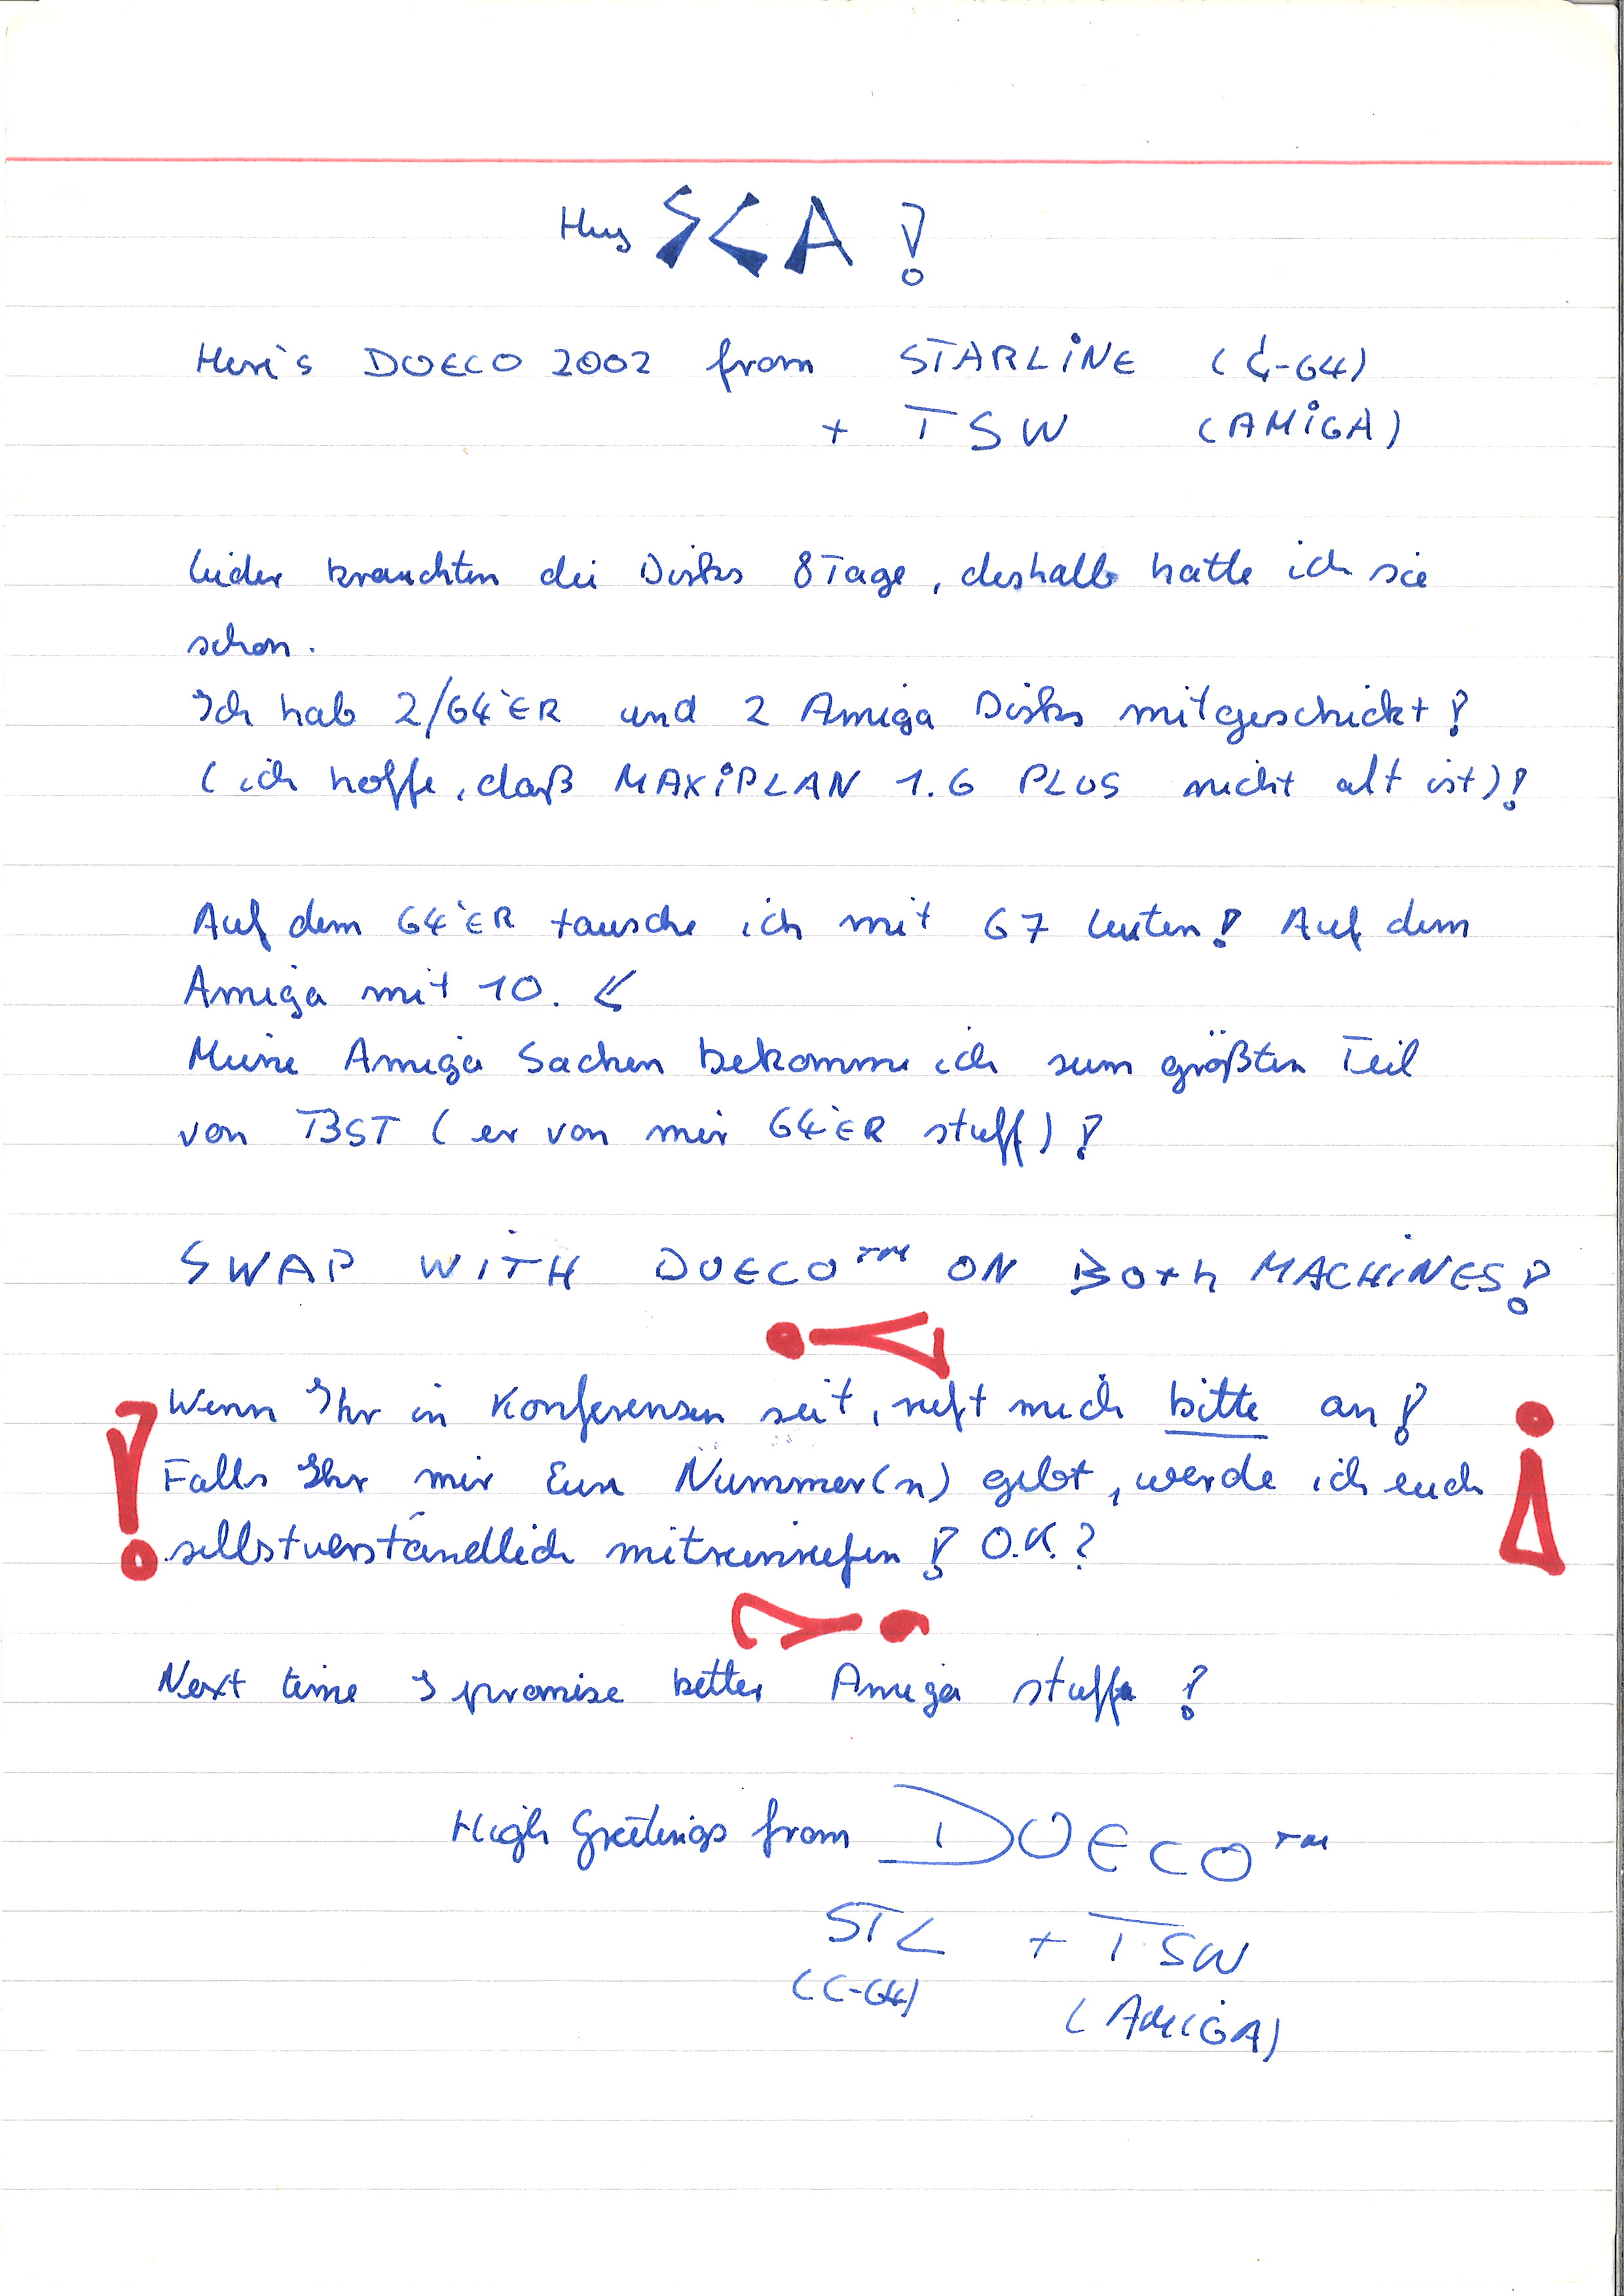 Hey SCA!
Here's DUECO 2002 from STARLiNE (C-64)
+ TSW (AMiGA)
leider brauchten die Disks 8 Tage, deshalb hatte ich sie
schon.
Ich hab 2/64'ER und 2 Amiga Disks mitgeschickt!
(ich hoffe, daß MAXiPLAN 1.6 PLUS nicht alt ist)!
Auf dem 64'ER tausche ich mit 67 Leuten! Auf dem
Amiga mit 10.
Meine Amiga Sachen bekomme ich zum größten Teil
von TBST (er von mir 64'ER stuff)!
SWAP WiTH DUECO™ ON BOTH MACHiNES!
!
! Wenn Ihr in Konferenzen seit, ruft mich bitte an! !
Falls Ihr mir Eure Nummer(n) gebt, werde ich euch
selbstverständlich mitreinrufen! O.K.?
Next time I promise better Amiga stuff!
High Greetings from DUECO™
STL + TSW
(C-64)
(AMiGA)